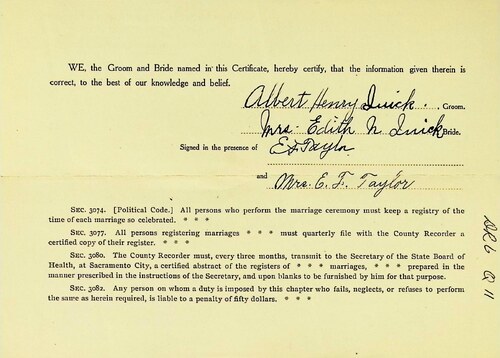 WE, the Groom and Bride named in this Certificate, hereby certify, that the information given therein is
correct, to the best of our knowledge and belief.
Albert Henry Quick. Groom.
Mrs. Edith N Quick Bride.
Signed in the presence of E F Taylor
and Mrs. E. F. Taylor
SEC. 3074. [Political Code.] All persons who perform the marriage ceremony must keep a registry of the
time of each marriage so celebrated. * * *
SEC. 3077. All persons registering marriages * * * must quarterly file with the County Recorder
a certified copy of their register. * * *
SEC. 3080. The County Recorder must, every three months, transmit to the Secretary of the State Board of
Health, at Sacramento City, a certified abstract of the registers of * * * marriages, * * * prepared in the
manner prescribed in the instructions of the Secretary, and upon blanks to be furnished by him for that purpose.
SEC. 3082. Any person on whom a duty is imposed by this chapter who fails, neglects, or refuses to perform
the same as herein required, is liable to a penalty of fifty dollars. * * *